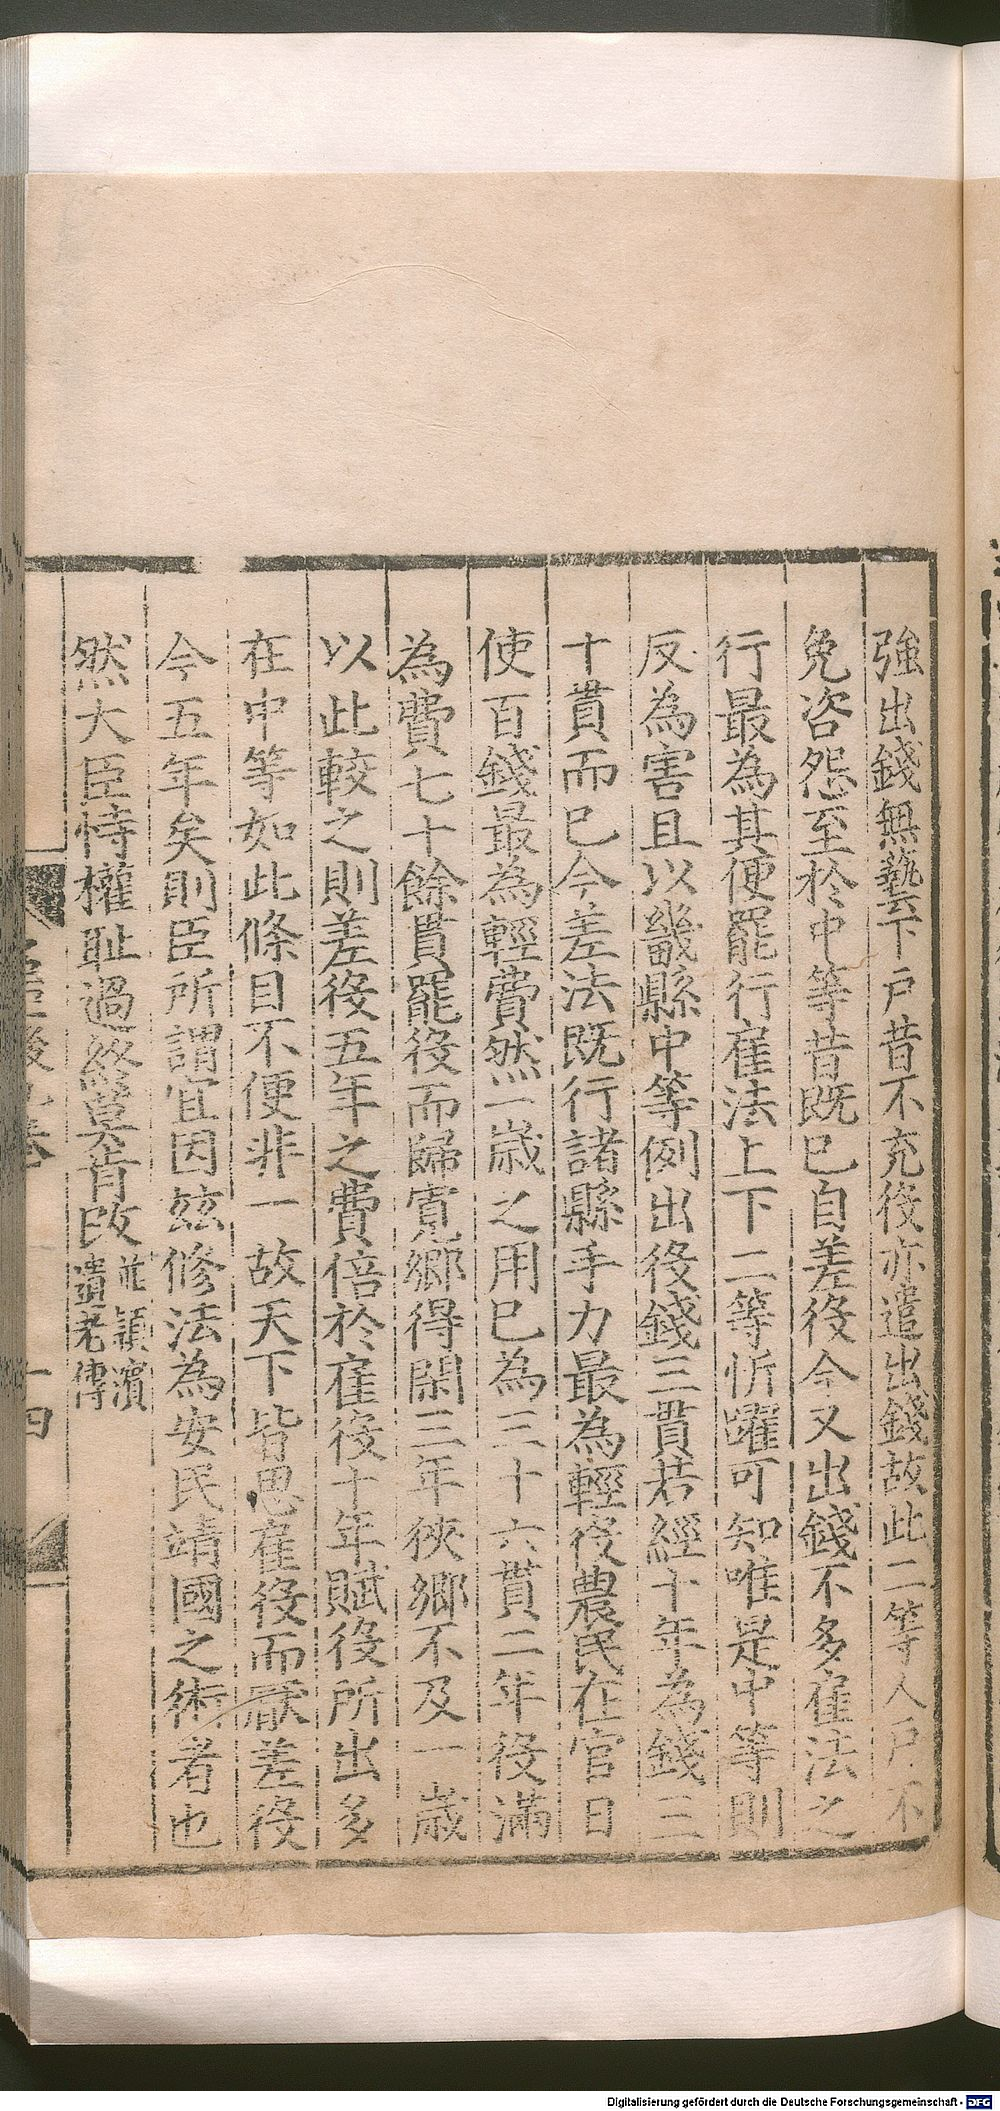 強出錢無藝下戶昔不充役亦遣出錢故此二等人戶不
免咨怨至於中等昔既已自差役今又出錢不多雇法之
行最為其便罷行雇法上下二等忻躍可知唯是中等則
反為害且以畿縣中等例出役錢三貫若經十年為錢三
十貫而已今差法既行諸縣手力最為輕役農民在官日
使百錢最為輕費然一歲之用已為三十六貫二年役滿
為費七十餘貫罷役而歸寬鄉得閑三年狹鄉不及一歲
以此較之則差役五年之費倍於雇役十年賦役所出多
在中等如此條目不便非一故天下皆思雇役而厭差役
今五年矣則臣所謂宜因茲修法為安民靖國之術者也
然大臣恃權耻過終莫肯改並潁濱
遺老傳
十四
Digitalisierung gefördert durch die Deutsche Forschungsgemeinschaft - DFG